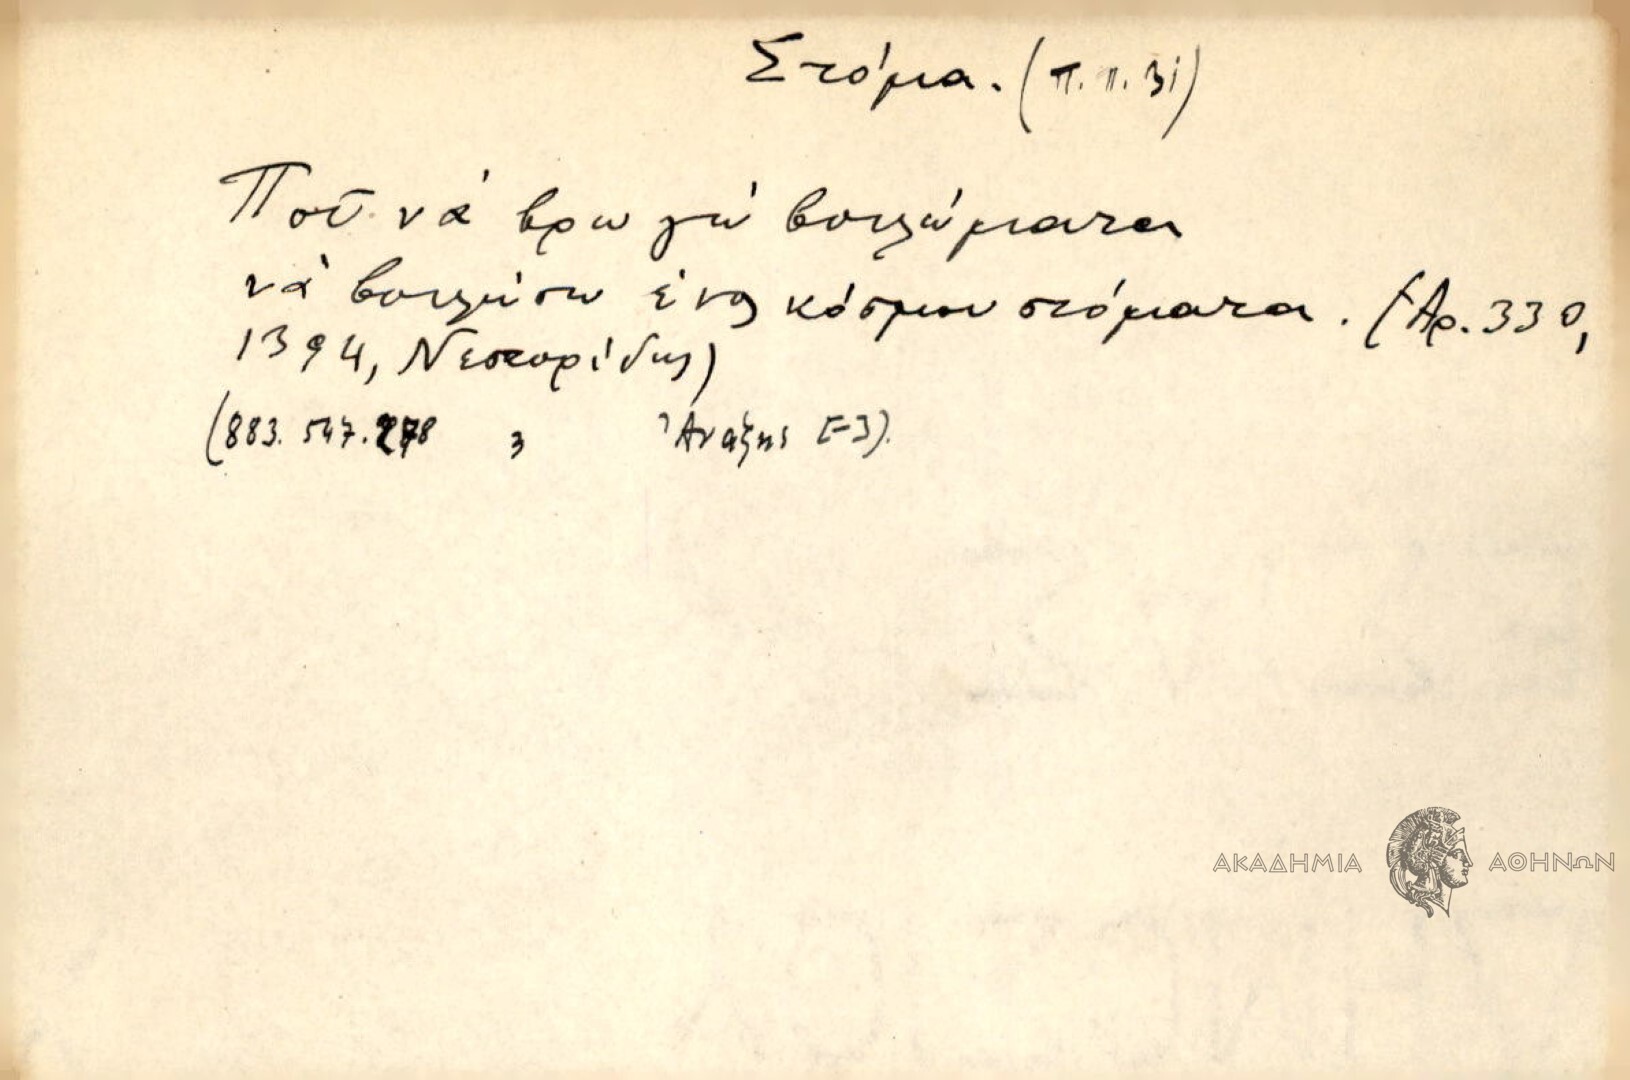 Στόμα. (π.π. 31)
Ποῦ νά βρω γώ βουλώματα
νά βουλώσω ἑνός κόσμου στόματα. (Ἀρ. 330,
1394, Νεστορίδης)
(883. 547. 278 , Ἀναξης
ΑΚΑΔΗΜΙΑ ΑΘΗΝΩΝ